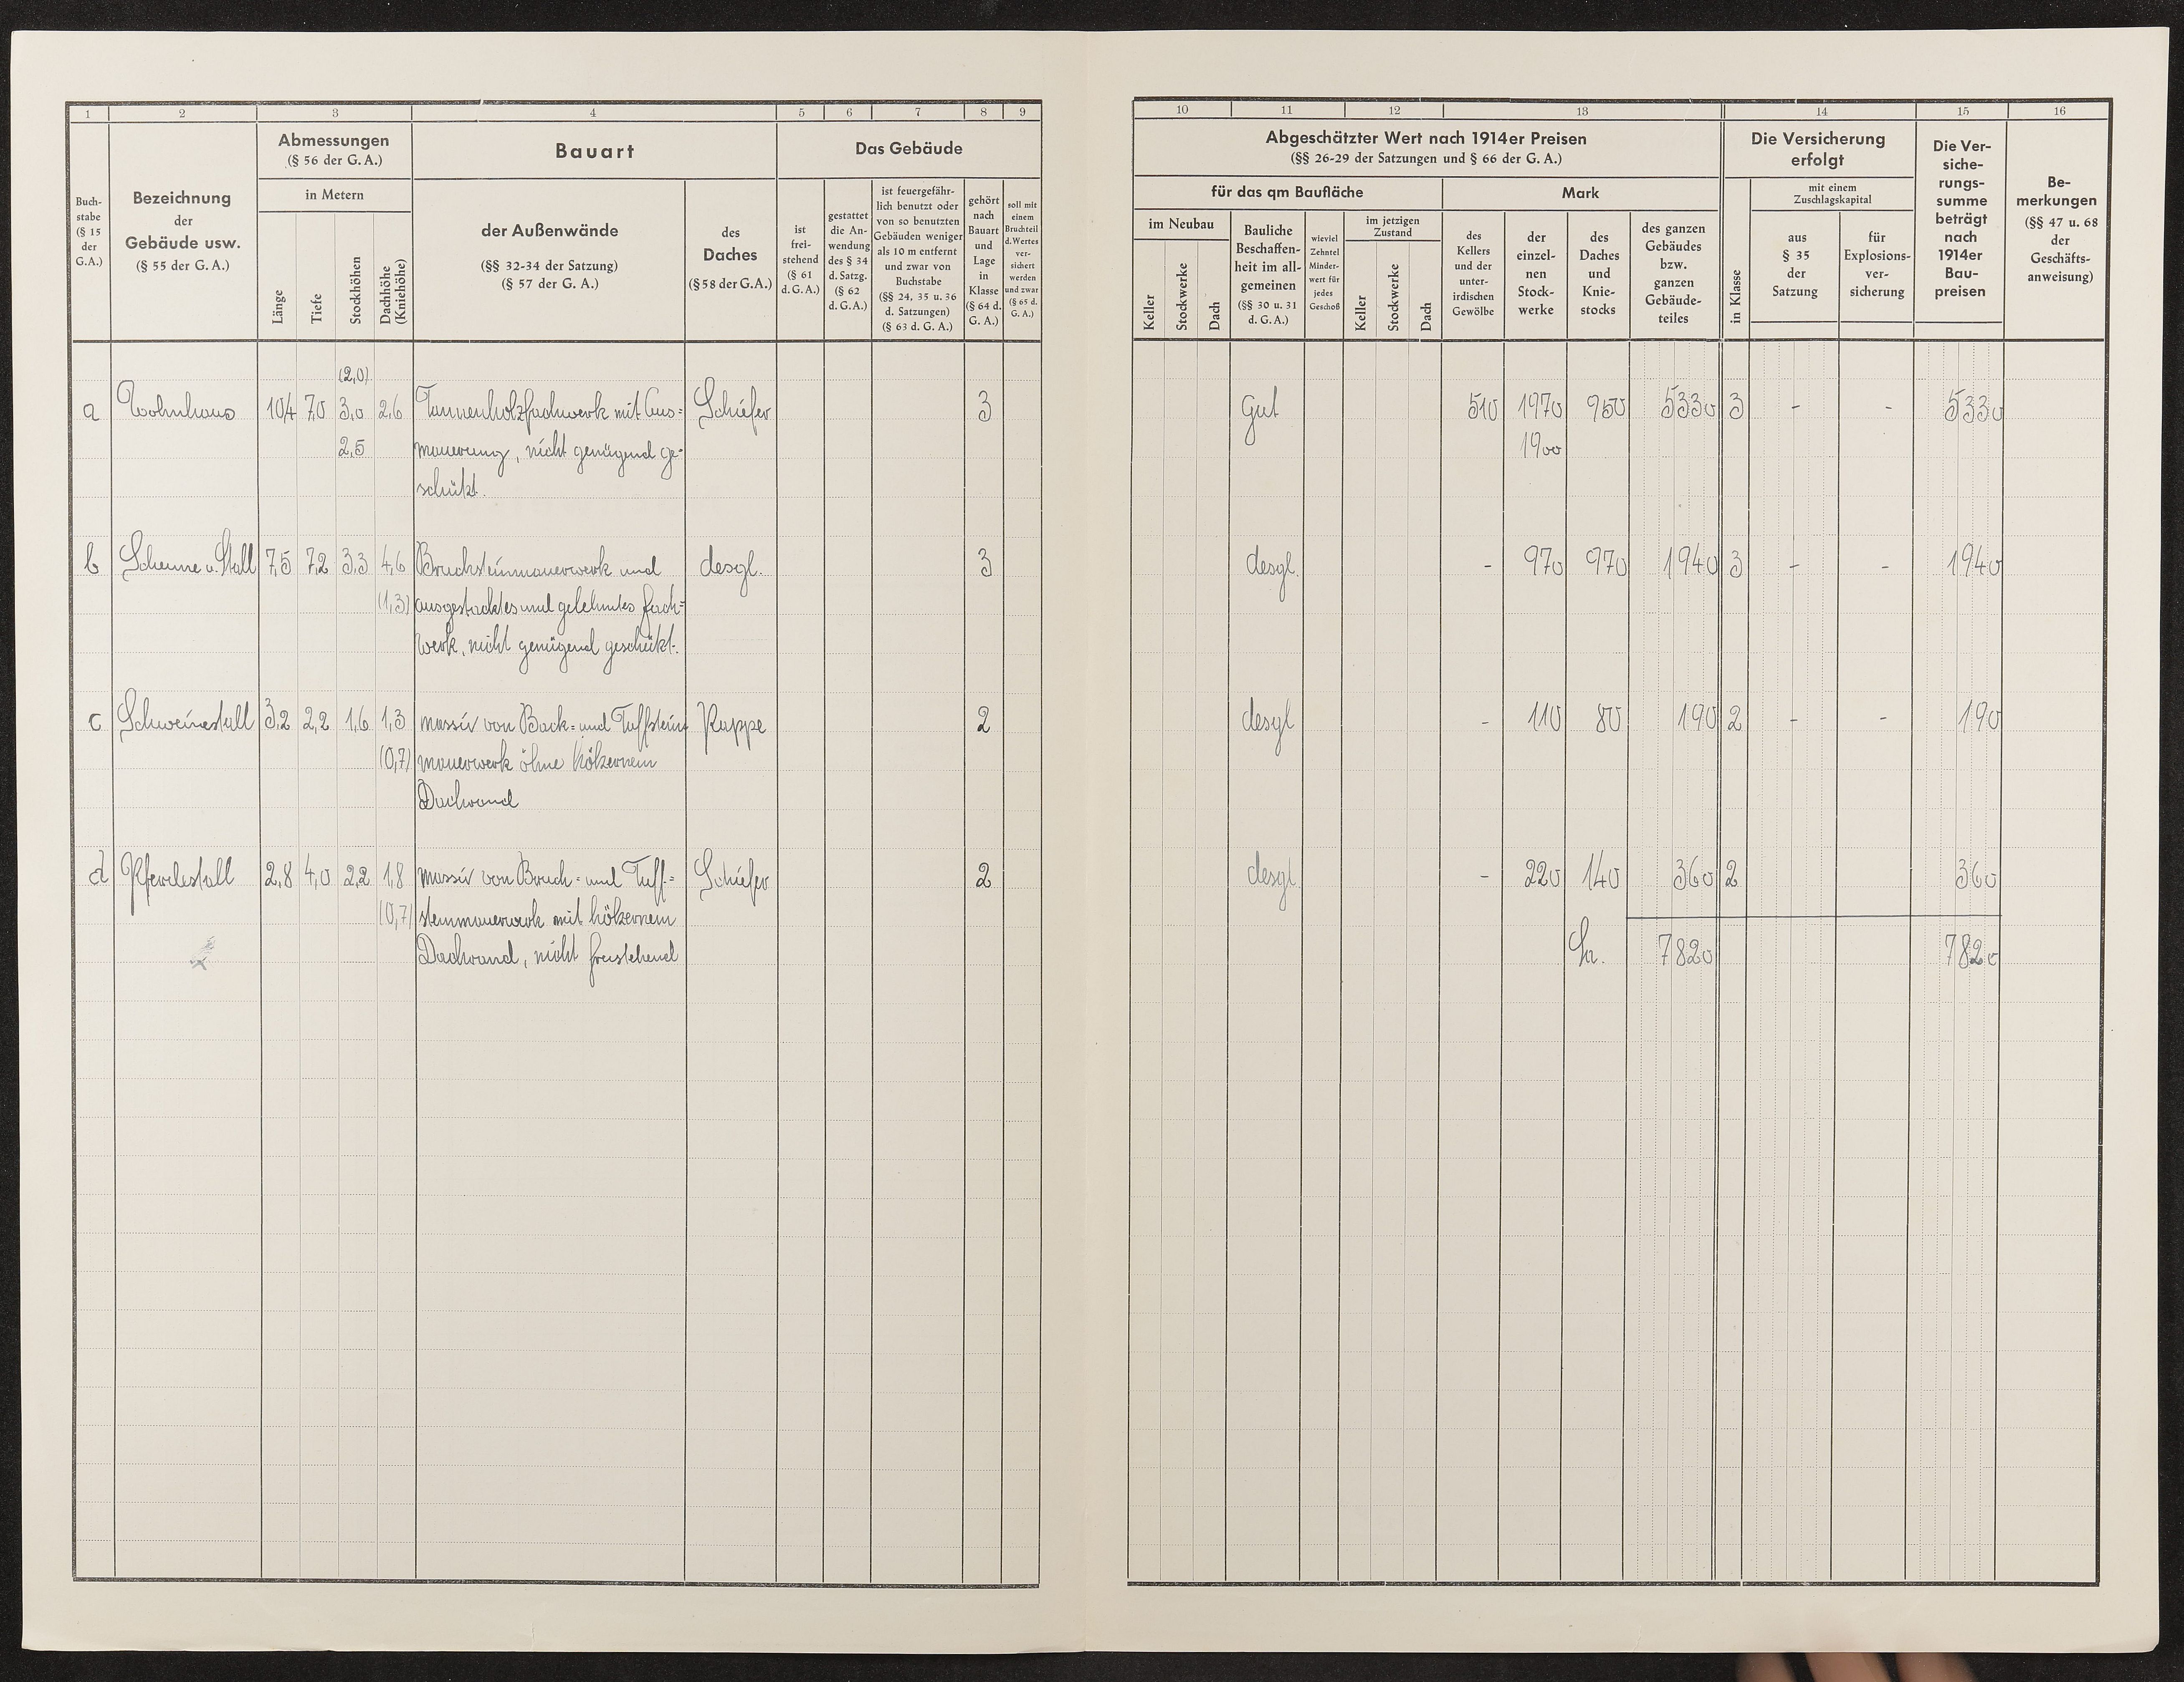 1 2 3 4 5 6 7 8 9
Abmessungen
(§ 56 der G. A.)
Bauart
Das Gebäude
in Metern
Buch-
stabe
(§ 15
der
G.A.)
Bezeichnung
der
Gebäude usw.
(§ 55 der G. A.)
Länge
Tiefe
Stockhöhen
Dachhöhe
(Kniehöhe)
der Außenwände
(§§ 32-34 der Satzung)
(§ 57 der G. A.)
des
Daches
(§ 58 der G.A.)
ist
frei-
stehend
(§ 61
d. G. A.)
gestattet
die An-
wendung
des § 34
d. Satzg.
(§ 62
d. G.A.)
ist feuergefähr-
lich benutzt oder
von so benutzten
Gebäuden weniger
als 10 m entfernt
und zwar von
Buchstabe
(§§ 24, 35 u. 36
d. Satzungen)
(§ 63 d. G. A.)
gehört
nach
Bauart
und
Lage
in
Klasse
(§ 64 d.
G. A.)
soll mit
einem
Bruchteil
d. Wertes
ver-
sichert
werden
und zwar
(§ 65 d.
G. A.)
(2,0)
a Wohnhaus 10,4 7,0 3,0 2,6 Tannenholzfachwerk mit Aus= Schiefer 3
2,5 mauerung, nicht genügend ge-
schützt.
b Scheune u. Stall 7,5 7,2 3,3 4,6 Bruchsteinmauerwerk und desgl. 3
(1,3) ausgestacktes und gelehmtes Fach=
werk, nicht genügend geschützt.
c Schweinestall 3,2 2,2 1,6 1,3 massiv von Back= und Tuffstein Pappe 2
(0,7) mauerwerk ohne hölzernem
Dachrand
d Pferdestall 2,8 4,0 2,2 1,8 massiv von Bruch= und Tuff= Schiefer 2
(0,7) steinmauerwerk mit hölzernem
Dachrand, nicht freistehend
10 11 12 13 14 15 16
Abgeschätzter Wert nach 1914er Preisen
(§§ 26-29 der Satzungen und § 66 der G. A.)
Die Versicherung
erfolgt
Die Ver-
siche-
rungs-
summe
beträgt
nach
1914er
Bau-
preisen
Be-
merkungen
(§§ 47 u. 68
der
Geschäfts-
anweisung)
für das qm Baufläche
Mark
mit einem
Zuschlagskapital
im Neubau
Keller
Stockwerke
Dach
Bauliche
Beschaffen-
heit im all-
gemeinen
(§§ 30 u. 31
d. G. A.)
wieviel
Zehntel
Minder-
wert für
jedes
Geschoß
im jetzigen
Zustand
Keller
Stockwerke
Dach
des
Kellers
und der
unter-
irdischen
Gewölbe
der
einzel-
nen
Stock-
werke
des
Daches
und
Knie-
stocks
des ganzen
Gebäudes
bzw.
ganzen
Gebäude-
teiles
in Klasse
aus
§ 35
der
Satzung
für
Explosions-
ver-
sicherung
Gut 510 1970 950 5330 3 - - 5330
1900
desgl. - 970 970 1940 3 - - 1940
desgl - 110 80 190 2 - - 190
desgl. - 220 140 360 2 360
7820 7820